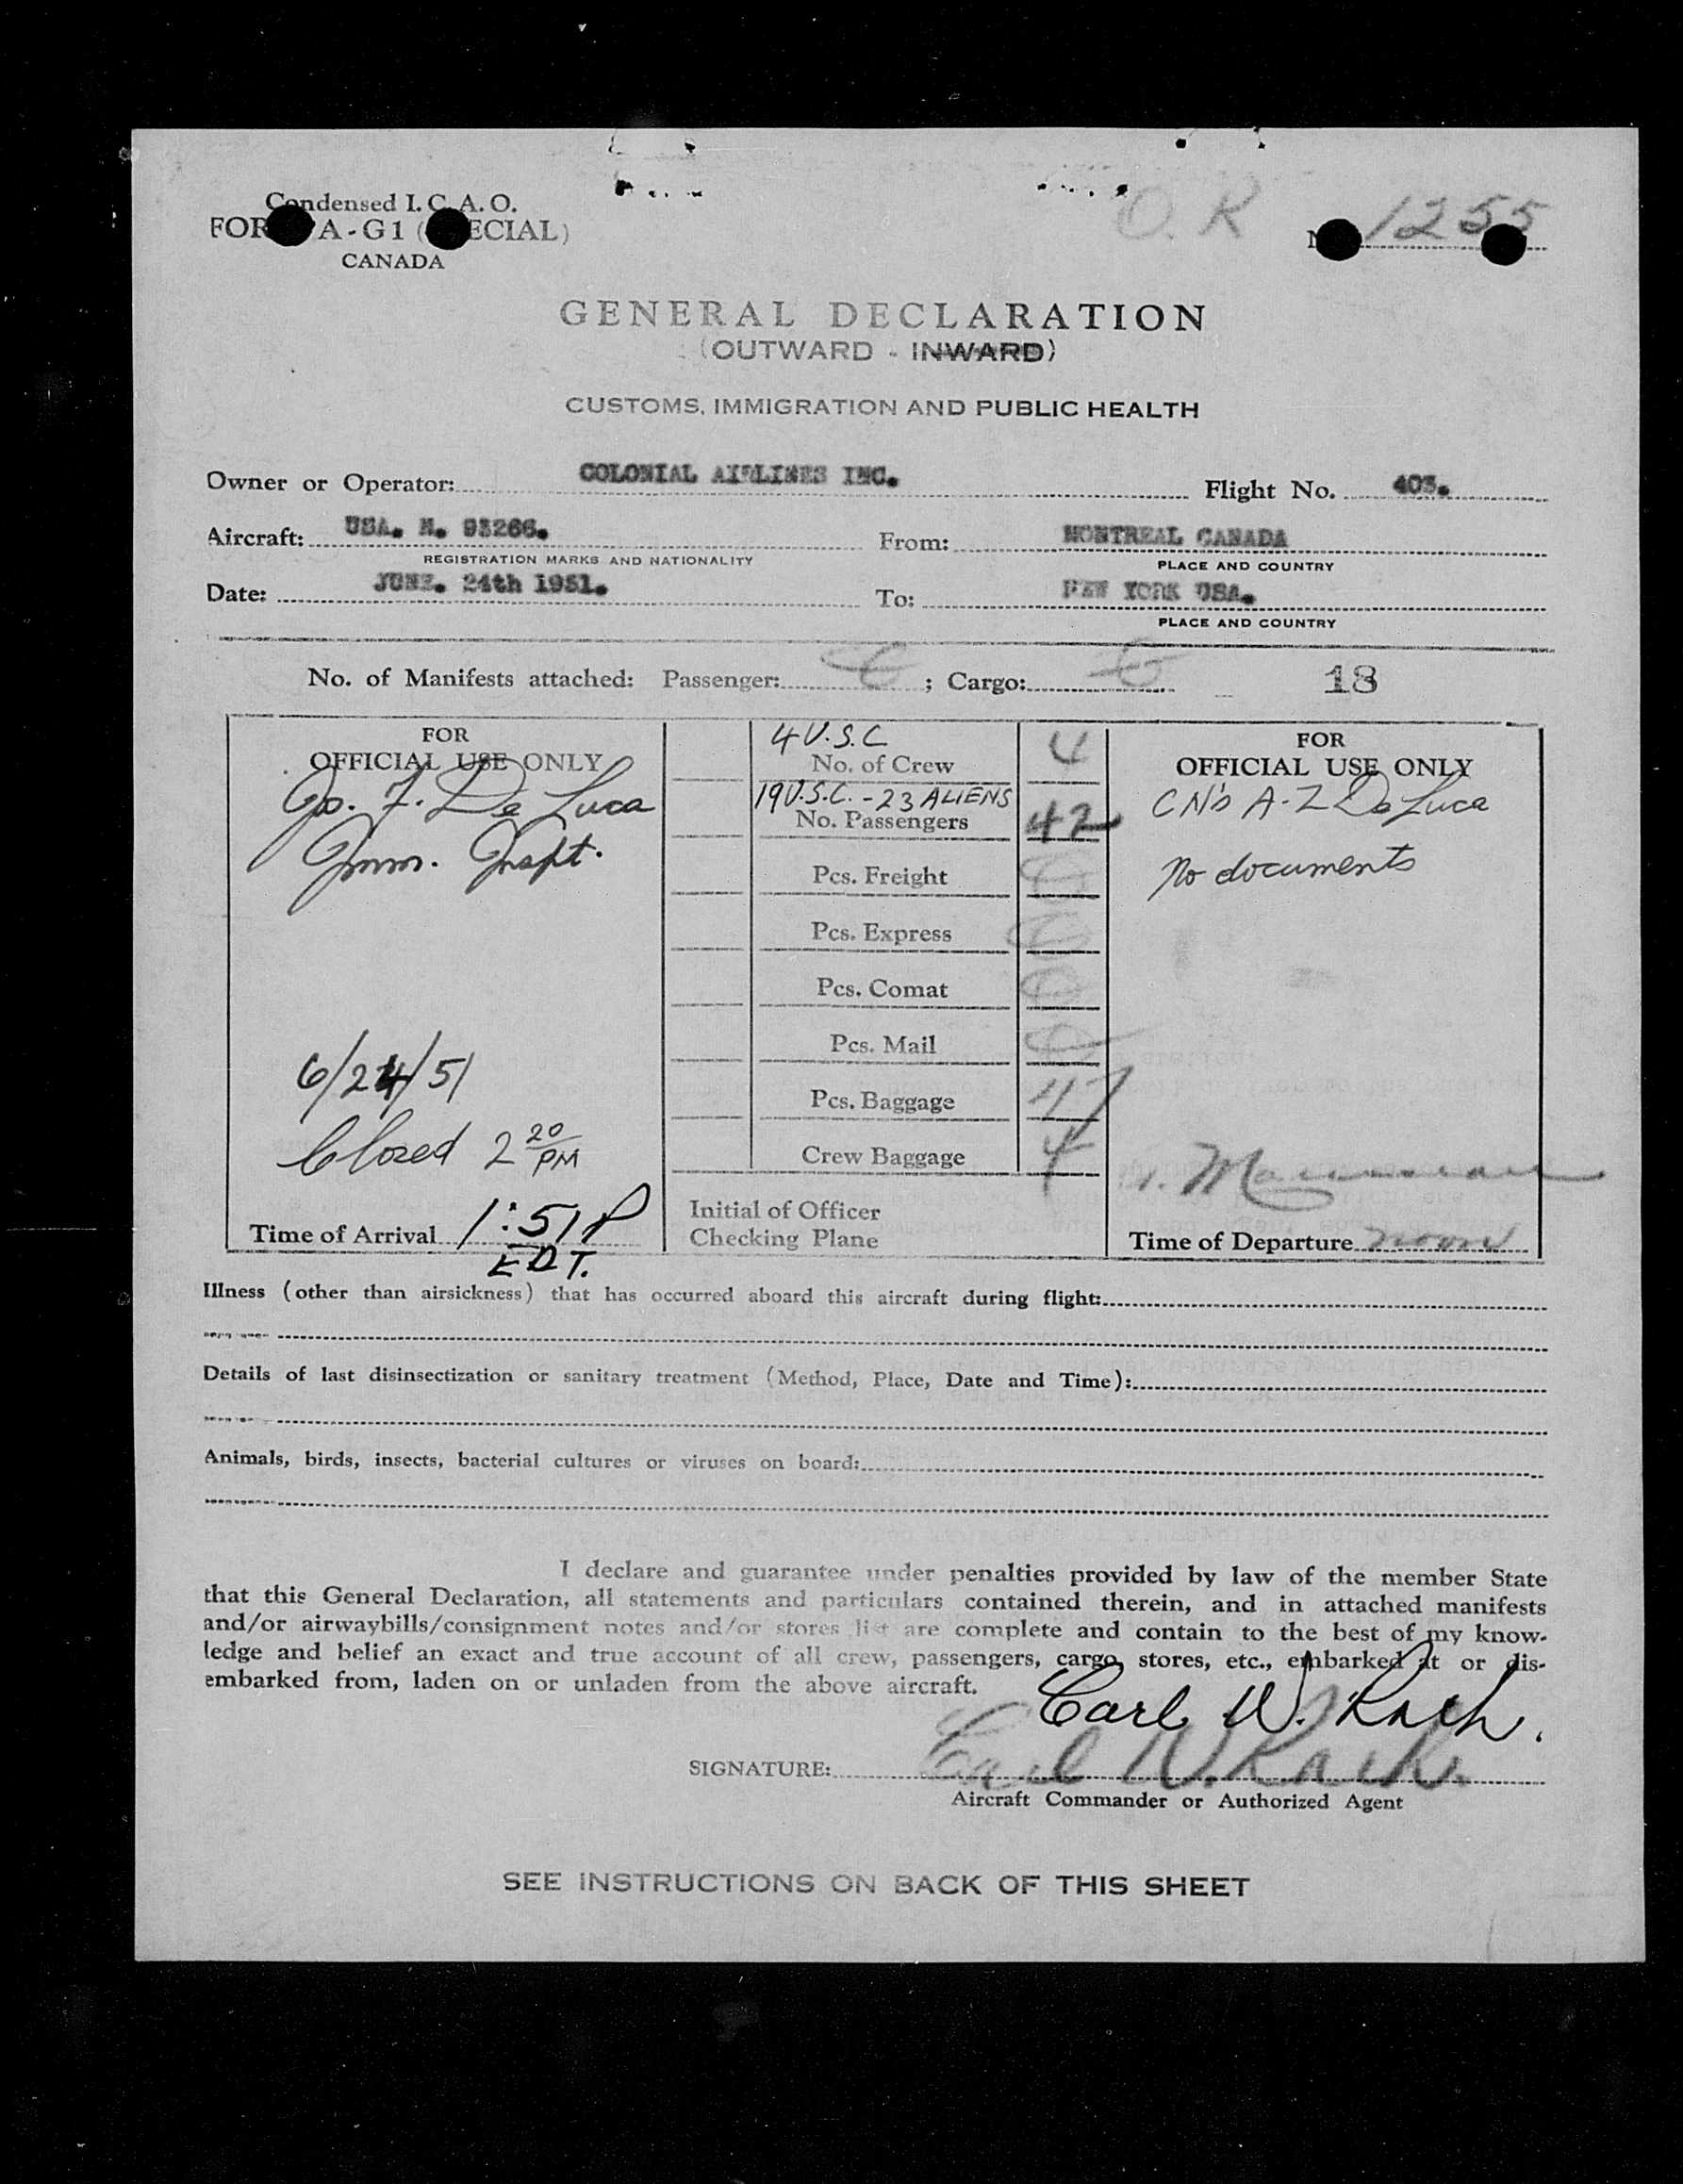 Condensed I. C. A. O. O. K
FOR A - G1 ( ECIAL) 1255
CANADA
GENERAL DECLARATION
(OUTWARD - INWARD)
CUSTOMS, IMMIGRATION AND PUBLIC HEALTH
Owner or Operator: COLONIAL AIRLINES INC. Flight No. 403.
Aircraft: USA. N. 93266. From: MONTREAL CANADA
REGISTRATION MARKS AND NATIONALITY PLACE AND COUNTRY
Date: JUNE. 24th 1951. To: NEW YORK USA.
PLACE AND COUNTRY
No. of Manifests attached: Passenger: ; Cargo: 18
FOR
OFFICIAL USE ONLY
Jo. F. De Luca
Imm. Inspt.
6/24/51
Closed 2 20 PM
Time of Arrival 1:51 P
EDT.
4 U.S.C
No. of Crew 4
19 U.S.C. - 23 ALIENS
No. Passengers 42
Pcs. Freight 0
Pcs. Express 0
Pcs. Comat 0
Pcs. Mail 0
Pcs. Baggage 47
Crew Baggage 4
Initial of Officer
Checking Plane
FOR
OFFICIAL USE ONLY
CN's A-Z De Luca
No documents
Time of Departure noon
Illness (other than airsickness) that has occurred aboard this aircraft during flight:
Details of last disinsectization or sanitary treatment (Method, Place, Date and Time):
Animals, birds, insects, bacterial cultures or viruses on board:
I declare and guarantee under penalties provided by law of the member State
that this General Declaration, all statements and particulars contained therein, and in attached manifests
and/or airwaybills/consignment notes and/or stores list are complete and contain to the best of my know-
ledge and belief an exact and true account of all crew, passengers, cargo, stores, etc., embarked at or dis-
embarked from, laden on or unladen from the above aircraft.
Carl W. Rach.
SIGNATURE: Carl W. Rach.
Aircraft Commander or Authorized Agent
SEE INSTRUCTIONS ON BACK OF THIS SHEET